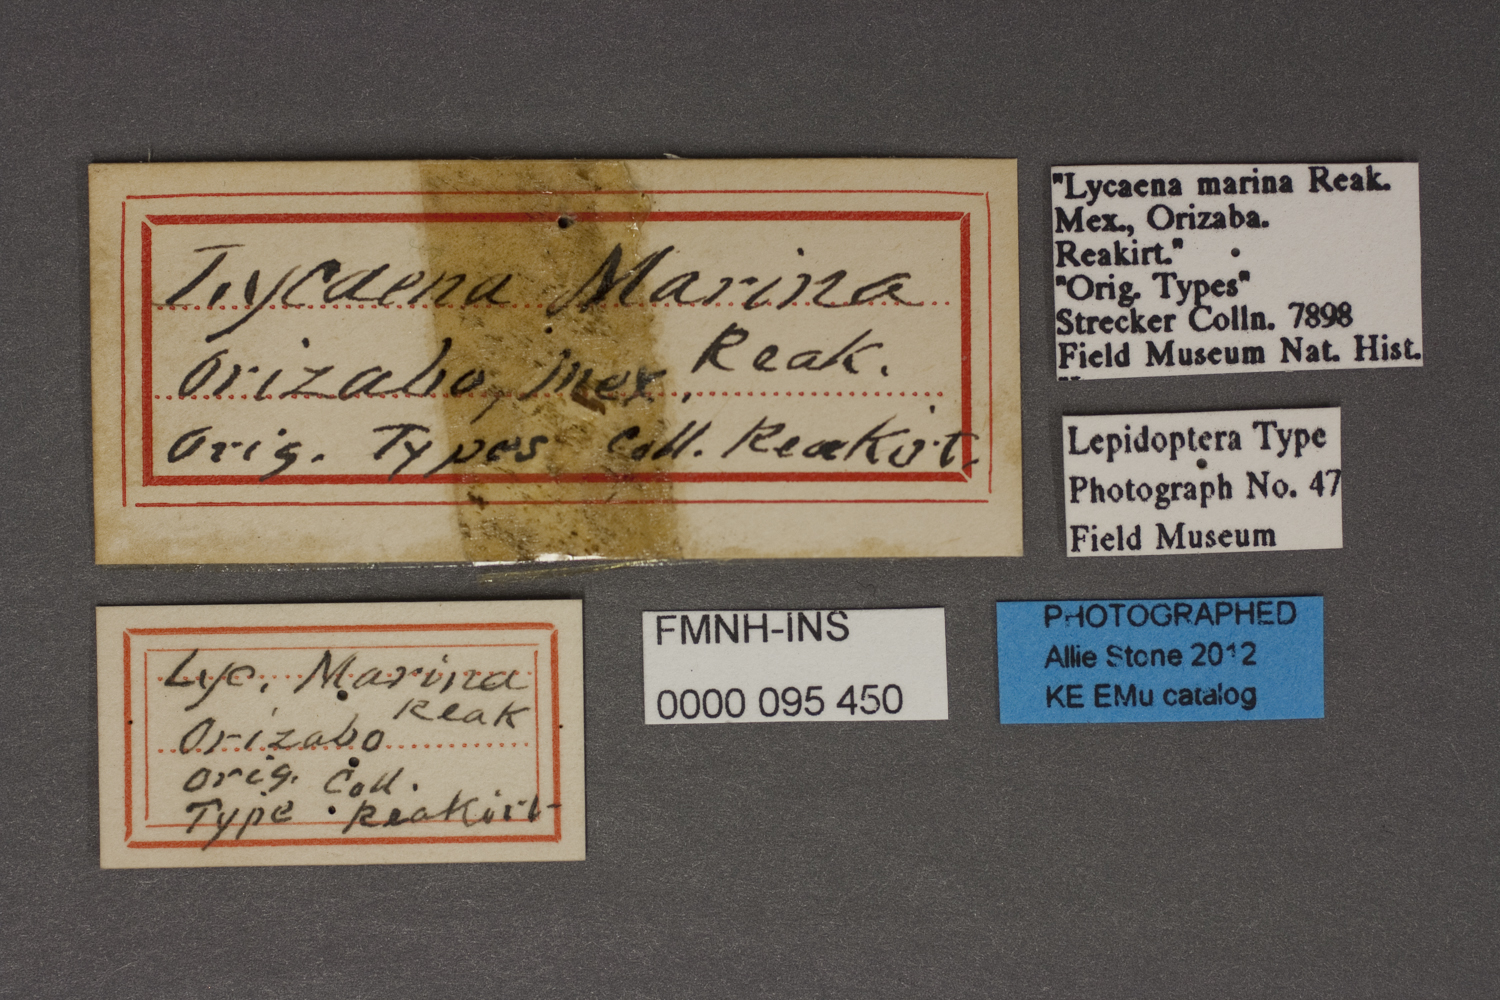 Lycaena Marina
Reak.
Orizabo, Mex.
Orig. Types Coll. Reakirt
"Lycaena marina Reak.
Mex., Orizaba.
Reakirt."
"Orig. Types"
Strecker Colln. 7898
Field Museum Nat. Hist.
Lepidoptera Type
Photograph No. 47
Field Museum
Lyc. Marina
Reak
Orizabo
Orig. Coll.
Type Reakirt
FMNH-INS
0000 095 450
PHOTOGRAPHED
Allie Stone 2012
KE EMu catalog